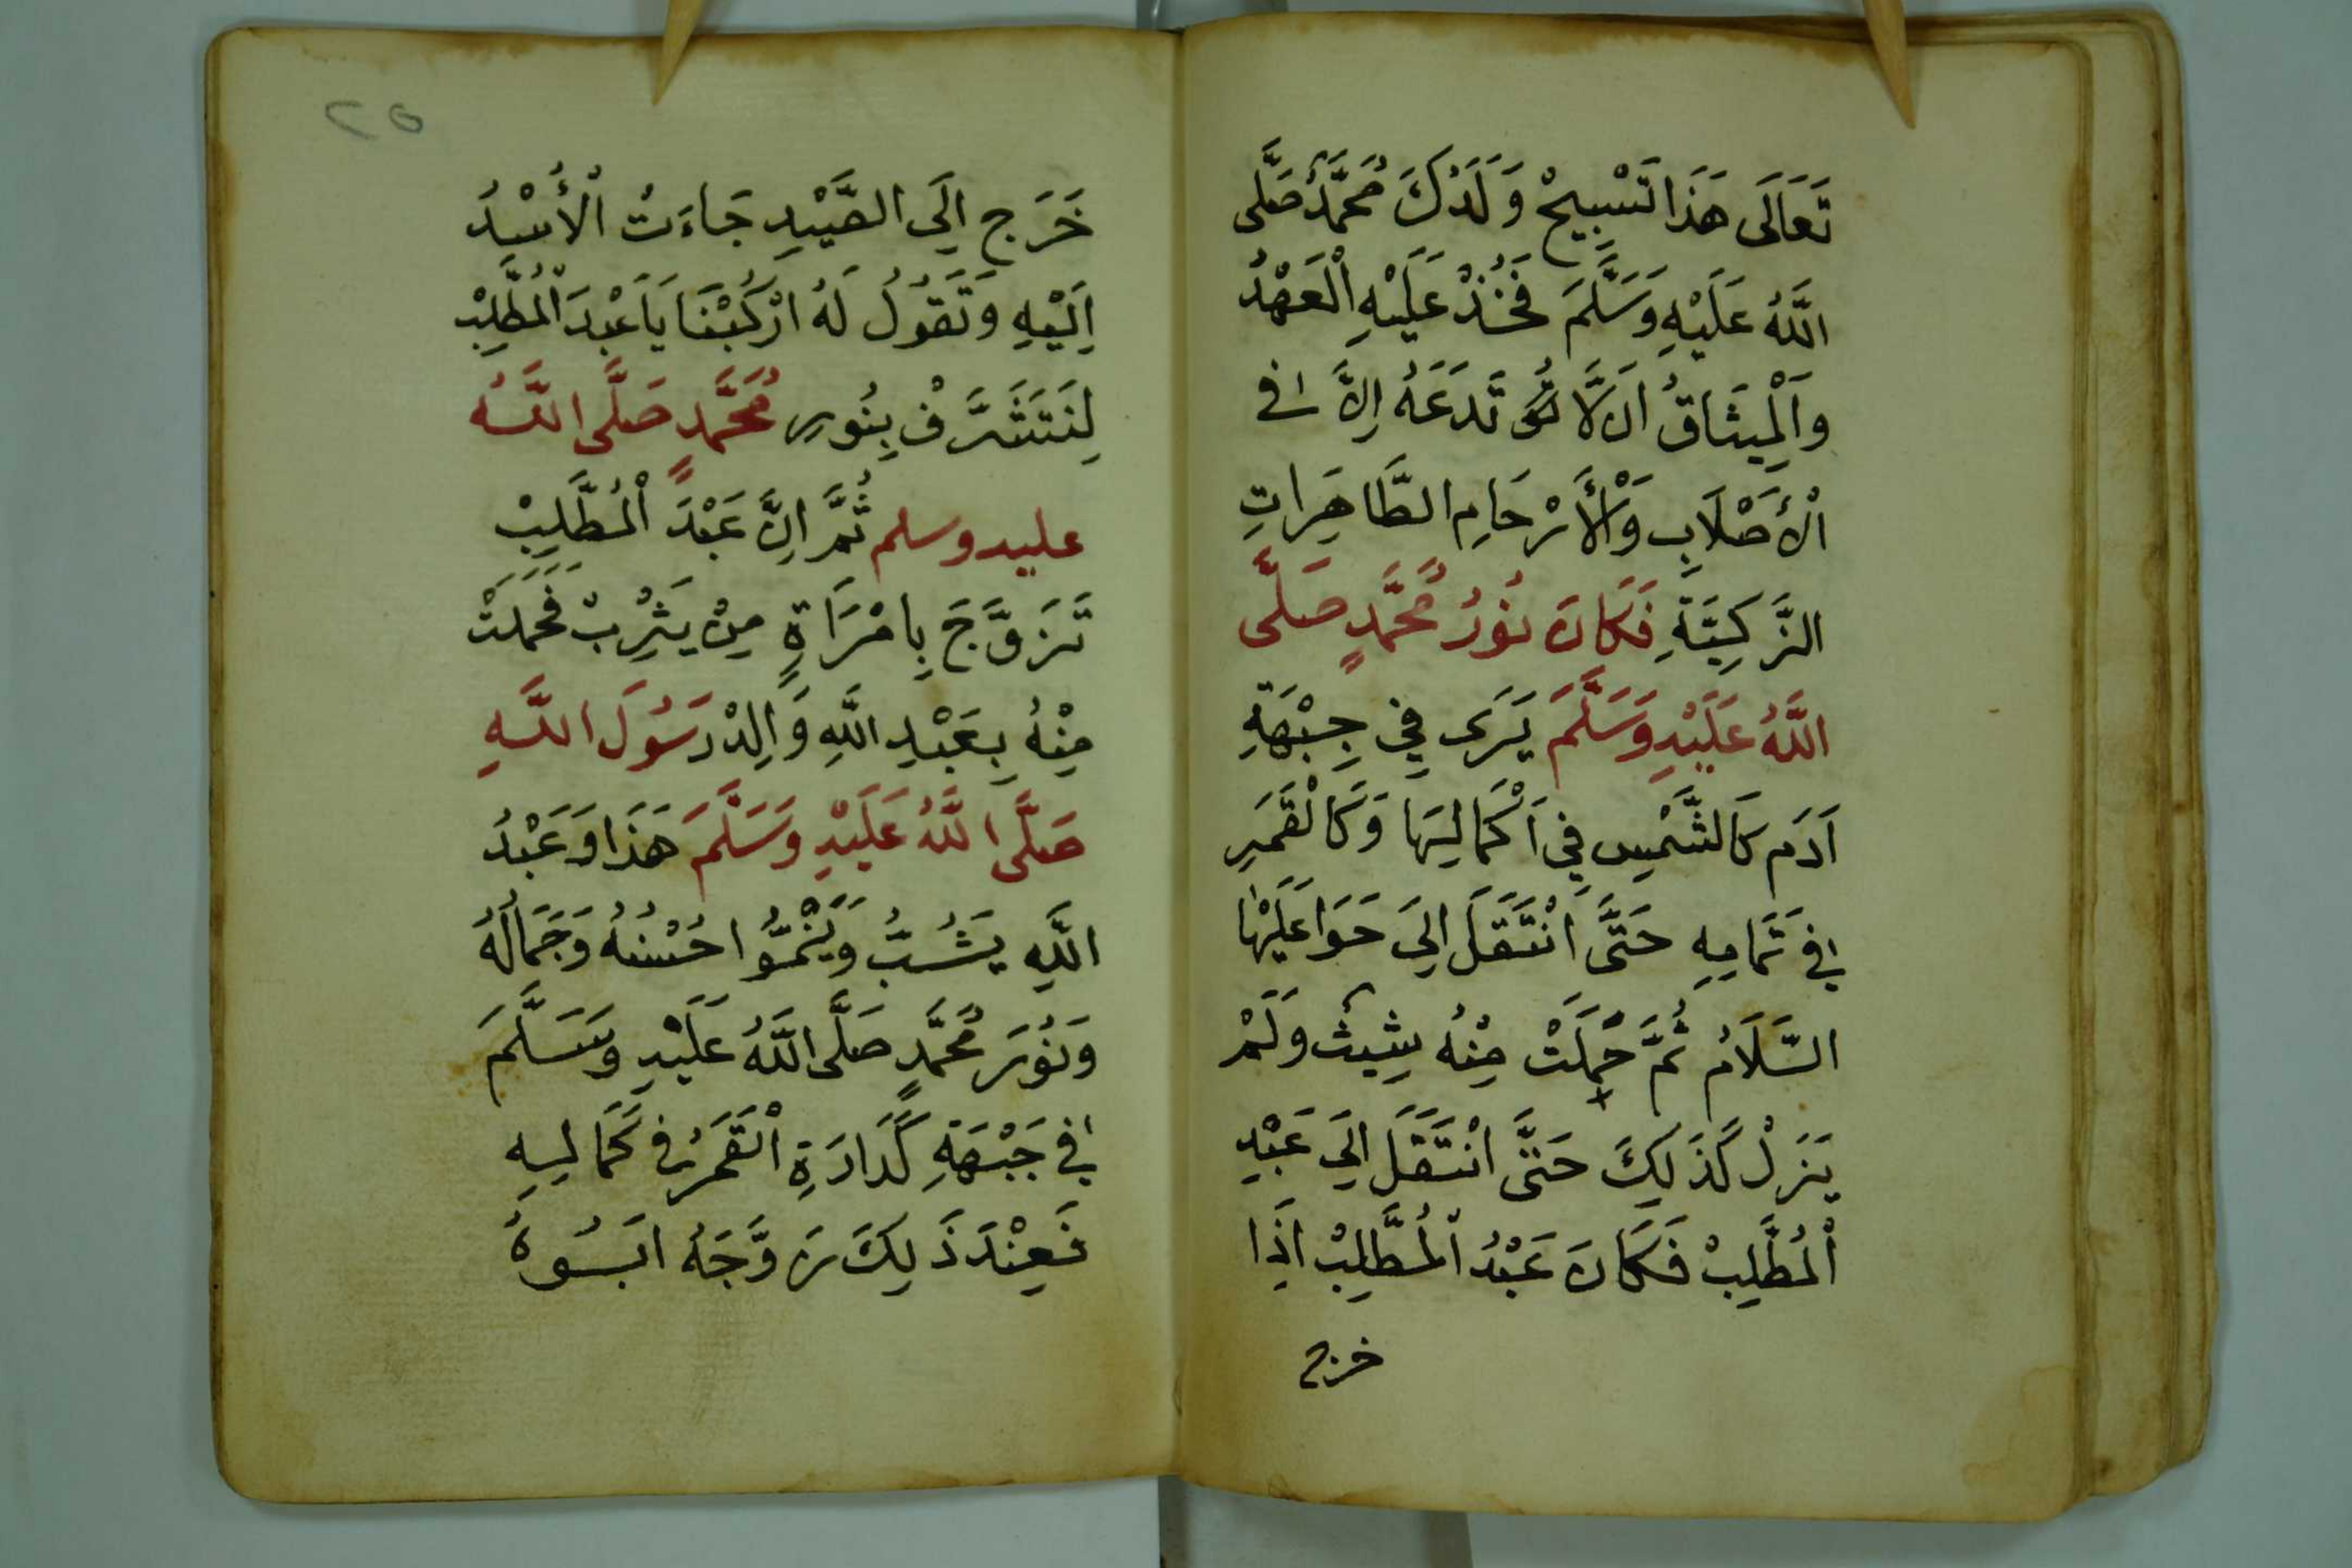 تَعَالَى هَذَا تَسْبِيحْ وَلَدُكَ مُحَمَّدٌ صَلَّى
اللَّهُ عَلَيْهِ وَسَلَّمَ فَخُذْ عَلَيْهِ الْعَهْدُ
وَالْمِيثَاقُ اَلَّا تَدَعَهُ اِلَّا فِي
الْأَصْلَابِ وَالْأَرْحَامِ الطَّاهِرَاتِ
الزَّكِيَّةِ فَكَانَ نُورُ مُحَمَّدٍ صَلَّى
اللَّهُ عَلَيْهِ وَسَلَّمَ يَرَى فِي جِبْهَةِ
آدَم كَالشَّمْسِ فِي اَكْمَالِهَا وَكَالْقَمَرِ
فِي تَمَامِهِ حَتَّى انْتَقَلَ اِلَى حَوَا عَلَيْهَا
السَّلَامُ ثُمَّ حَمَلَتْ مِنْهُ بِشِيثْ وَلَمْ
يَزَلْ كَذَلِكَ حَتَّى انْتَقَلَ اِلَى عَبْدِ
الْمُطَّلِبْ فَكَانَ عَبْدُ الْمُطَّلِبْ اِذَا
خرج
٢٥
خَرَجَ اِلَى الصَّيْدِ جَاءَتْ الْأُسْدُ
اِلَيْهِ وَتَقُولُ لَهُ ارْكَبْنَا يَا عَبْدَ الْمُطَّلِبْ
لِنَتَشَرَّفْ بِنُورِ مُحَمَّدٍ صَلَّى اللَّهُ
عليه وسلم ثُمَّ اِنَّ عَبْدَ الْمُطَّلِبْ
تَزَوَّجَ بِامْرَاَةٍ مِنْ يَثْرِبْ فَحَمَلَتْ
مِنْهُ بِعَبْدِ اللَّهِ وَالِدْ رَسُولَ اللَّهِ
صَلَّى اللَّهُ عَلَيْهِ وَسَلَّمَ هَذَا وَعَبْدُ
اللَّهِ يَشُبُّ وَيَنْمُوا حُسْنُهُ وَجَمَالُهُ
وَنُورَ مُحَمَّدٍ صَلَّى اللَّهُ عَلَيْهِ وَسَلَّمَ
فِي جَبْهَةِ كَدَارَةِ الْقَمَرُ فِي كَمَالِهِ
فَعِنْدَ ذَلِكَ زَوَّجَهُ اَبُوهُ